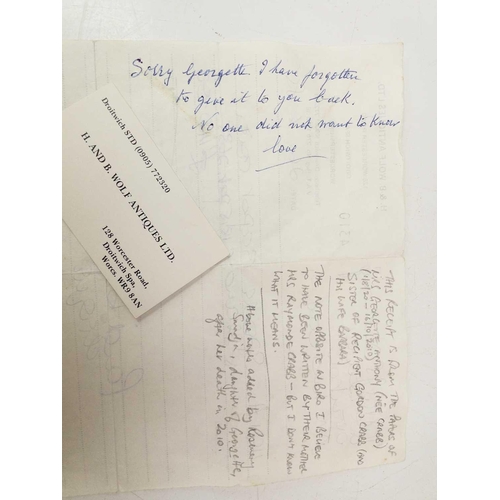 Sorry Georgette I have forgotten
to give it to you back.
No one did not want to know
love
Droitwich STD (0905) 772320
H. AND B. WOLF ANTIQUES LTD.
128 Worcester Road,
Droitwich Spa,
Worcs. WR9 8AN
THIS RECEIPT IS FROM THE PAPERS OF
MRS GEORGETTE (NEE CRABB)
SISTER OF RECIPIENT GORDON CRABB (AND
HIS WIFE BARBARA)
THE NOTE OPPOSITE IN BIRO I BELIEVE
TO HAVE BEEN WRITTEN BY THEIR MOTHER
MRS RAYMONDE CRABB – BUT I DON'T KNOW
WHAT IT MEANS.
Above notes added by Rosemary
daughter of Georgette,
after her death in 2010.